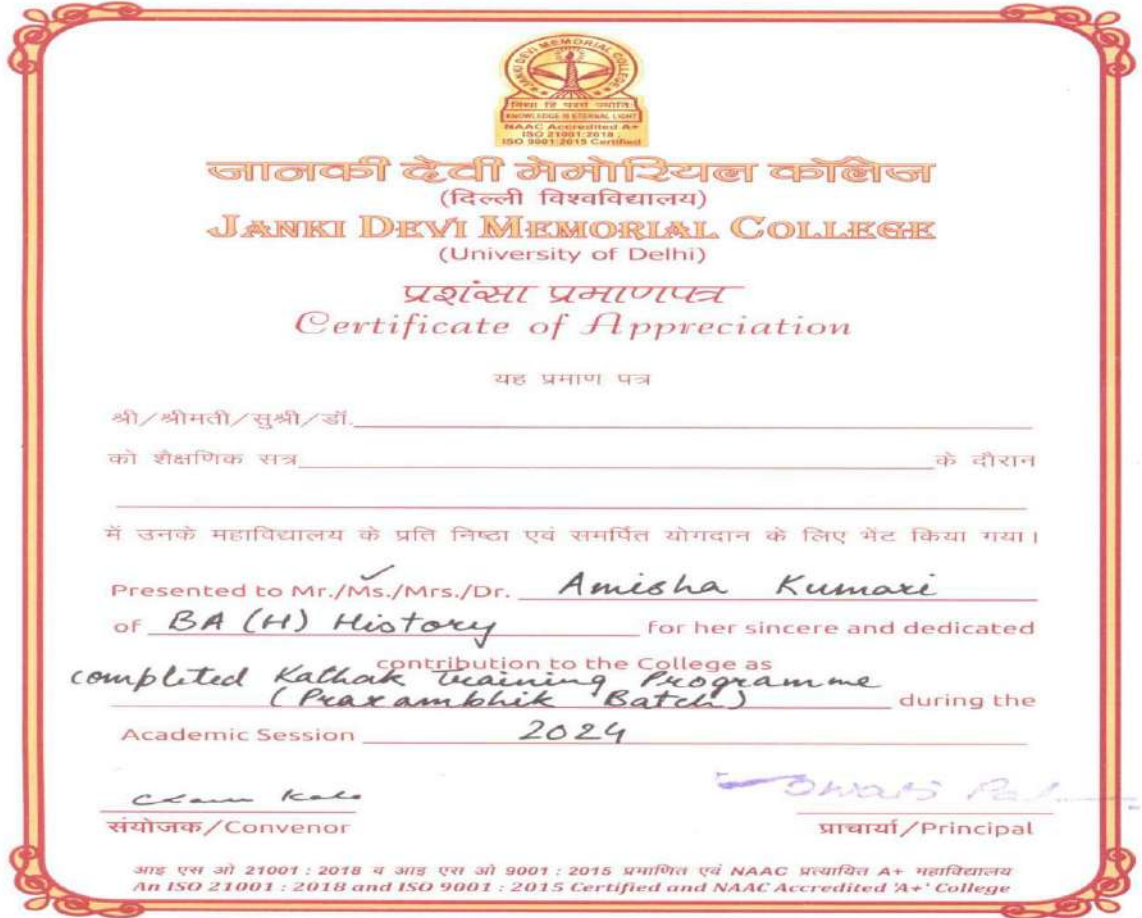 JANKI DEVI MEMORIAL COLLEGE
विद्या हि परमं ज्योतिः
KNOWLEDGE IS ETERNAL LIGHT
NAAC Accredited A+
ISO 21001:2018
ISO 9001:2015 Certified
जानकी देवी मेमोरियल कॉलेज
(दिल्ली विश्वविद्यालय)
JANKI DEVI MEMORIAL COLLEGE
(University of Delhi)
प्रशंसा प्रमाणपत्र
Certificate of Appreciation
यह प्रमाण पत्र
श्री/श्रीमती/सुश्री/डॉ.
को शैक्षणिक सत्र के दौरान
में उनके महाविद्यालय के प्रति निष्ठा एवं समर्पित योगदान के लिए भेंट किया गया।
Presented to Mr./Ms./Mrs./Dr. Amisha Kumari
of BA (H) History for her sincere and dedicated
contribution to the College as
completed Kathak Training Programme
(Prarambhik Batch) during the
Academic Session 2024
Swati Pal
संयोजक/Convenor प्राचार्या/Principal
आइ एस ओ 21001 : 2018 व आइ एस ओ 9001 : 2015 प्रमाणित एवं NAAC प्रत्यायित A+ महाविद्यालय
An ISO 21001 : 2018 and ISO 9001 : 2015 Certified and NAAC Accredited 'A+' College